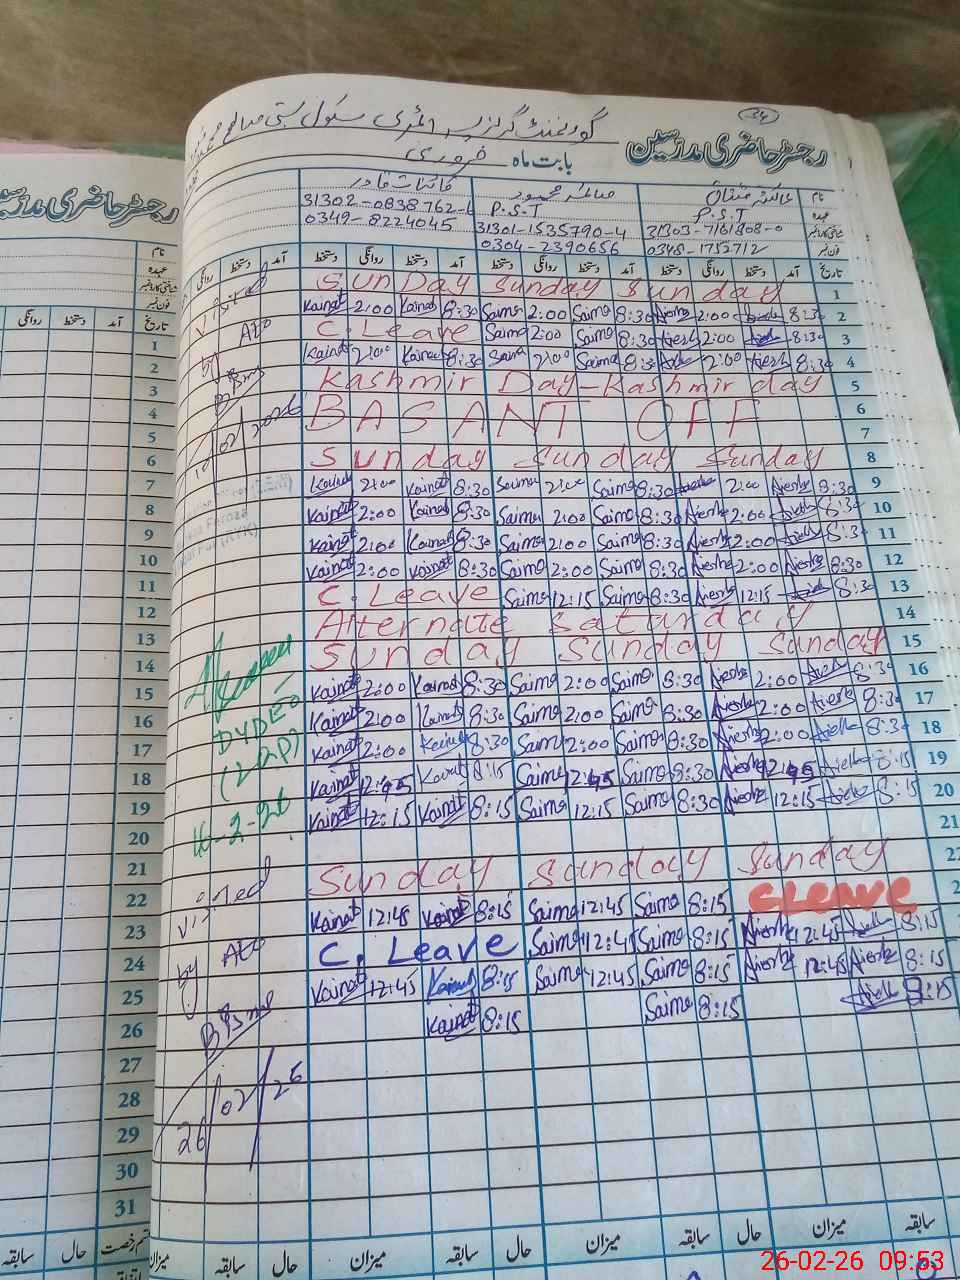 34
گورنمنٹ گرلز پرائمری سکول بستی صالح محمد
رجسٹر حاضری مدرسین
بابت ماہ فروری
نام عائشہ مشتاق صائمہ محمود کائنات قادر
عہدہ P.S.T P.S.T
شناختی کارڈ نمبر 31303-7161808-0 31301-1535790-4 31302-0838762-6
فون نمبر 0348-1752712 0304-2390656 0349-8224045
تاریخ آمد دستخط روانگی دستخط آمد دستخط روانگی دستخط آمد دستخط روانگی دستخط آمد دستخط روانگی
Sunday Sunday Sunday 1
Kainat 2:00 Kainat 8:30 Saima 2:00 Saima 8:30 Aiesha 2:00 Aiesha 8:30 2
C. Leave Saima 2:00 Saima 8:30 Aiesha 2:00 Aiesha 8:30 3
Kainat 2:00 Kainat 8:30 Saima 2:00 Saima 8:30 Aiesha 2:00 Aiesha 8:30 4
Kashmir Day-Kashmir day 5
BASANT OFF 6
7
Sunday Sunday Sunday 8
Kainat 2:00 Kainat 8:30 Saima 2:00 Saima 8:30 Aiesha 2:00 Aiesha 8:30 9
Kainat 2:00 Kainat 8:30 Saima 2:00 Saima 8:30 Aiesha 2:00 Aiesha 8:30 10
Kainat 2:00 Kainat 8:30 Saima 2:00 Saima 8:30 Aiesha 2:00 Aiesha 8:30 11
Kainat 2:00 Kainat 8:30 Saima 2:00 Saima 8:30 Aiesha 2:00 Aiesha 8:30 12
C. Leave Saima 12:15 Saima 8:30 Aiesha 12:15 Aiesha 8:30 13
Alternate Saturday 14
Sunday Sunday Sunday 15
Kainat 2:00 Kainat 8:30 Saima 2:00 Saima 8:30 Aiesha 2:00 Aiesha 8:30 16
Kainat 2:00 Kainat 8:30 Saima 2:00 Saima 8:30 Aiesha 2:00 Aiesha 8:30 17
Kainat 2:00 Kainat 8:30 Saima 2:00 Saima 8:30 Aiesha 2:00 Aiesha 8:30 18
Kainat 12:45 Kainat 8:15 Saima 12:45 Saima 8:30 Aiesha 12:45 Aiesha 8:15 19
Kainat 12:15 Kainat 8:15 Saima 12:15 Saima 8:30 Aiesha 12:15 Aiesha 8:15 20
21
Sunday Sunday Sunday 22
Kainat 12:45 Kainat 8:15 Saima 12:45 Saima 8:15 CLEAVE
C. Leave Saima 12:45 Saima 8:15 Aiesha 12:45 Aiesha 8:15
Kainat 12:45 Kainat 8:15 Saima 12:45 Saima 8:15 Aiesha 12:45 Aiesha 8:15
Kainat 8:15 Saima 8:15 Aiesha 8:15
Visited
by AEO
10/02/2026
DYDEO
16-2-26
Visited
by AEO
26/02/26
سابقہ حال میزان سابقہ حال میزان سابقہ حال میزان
رجسٹر حاضری مدرسین
نام
عہدہ
شناختی کارڈ نمبر
فون نمبر
تاریخ آمد دستخط روانگی
1
2
3
4
5
6
7
8
9
10
11
12
13
14
15
16
17
18
19
20
21
22
23
24
25
26
27
28
29
30
31
قسم رخصت حال سابقہ
26-02-26 09:53